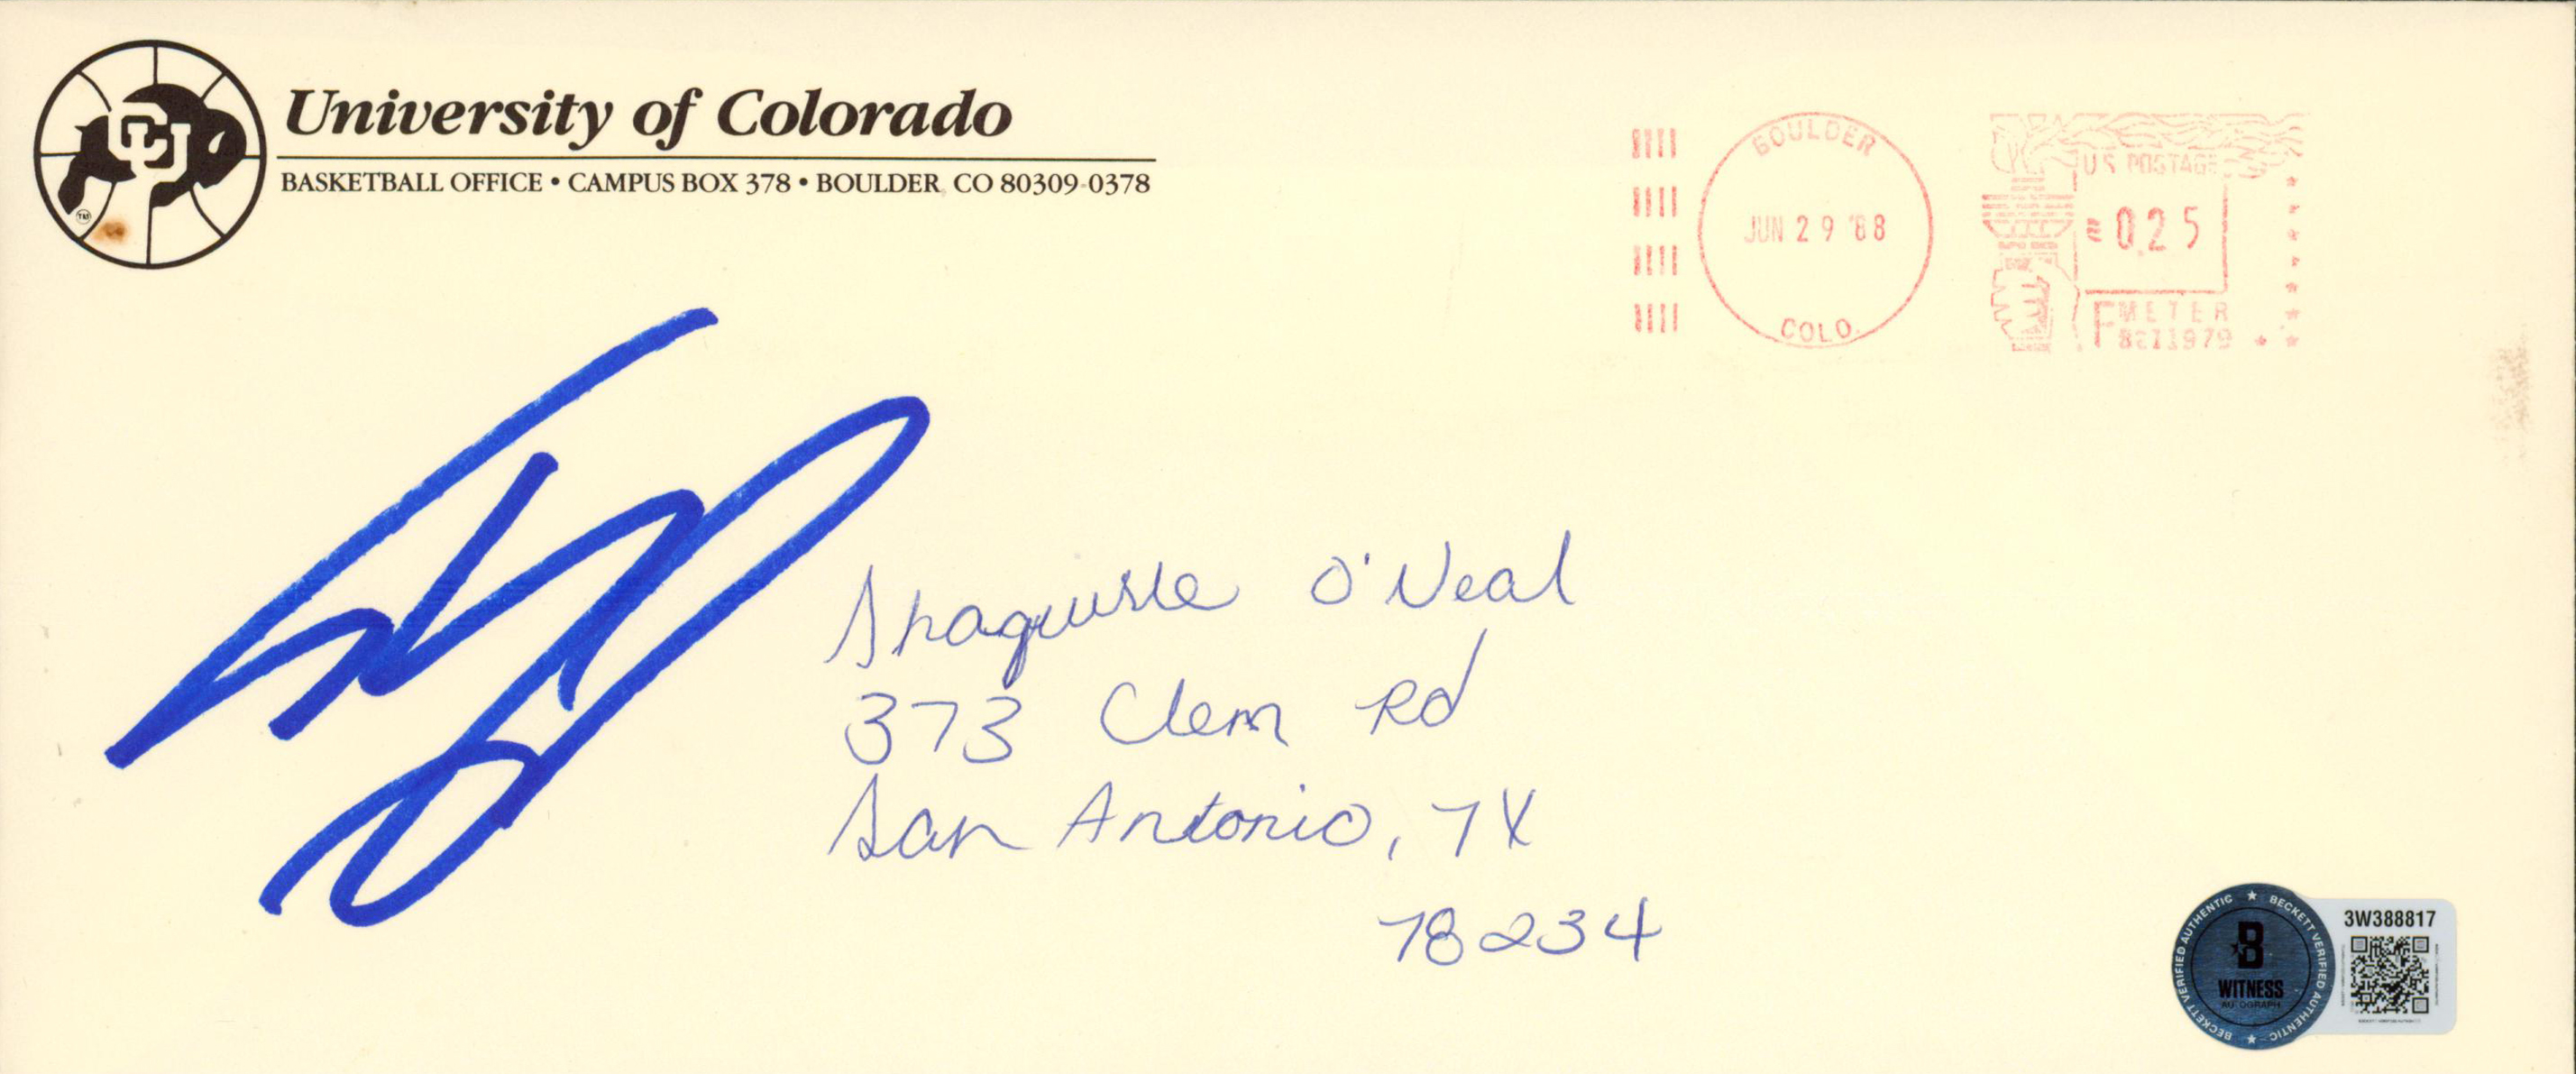 CU
University of Colorado
BASKETBALL OFFICE • CAMPUS BOX 378 • BOULDER, CO 80309-0378
BOULDER
JUN 29 '88
COLO.
U.S. POSTAGE
025
METER
Shaquille O'Neal
373 Clem Rd
San Antonio, TX
78234
BECKETT VERIFIED AUTHENTIC ★ BECKETT VERIFIED AUTHENTIC ★
B
WITNESS
AUTOGRAPH
3W388817